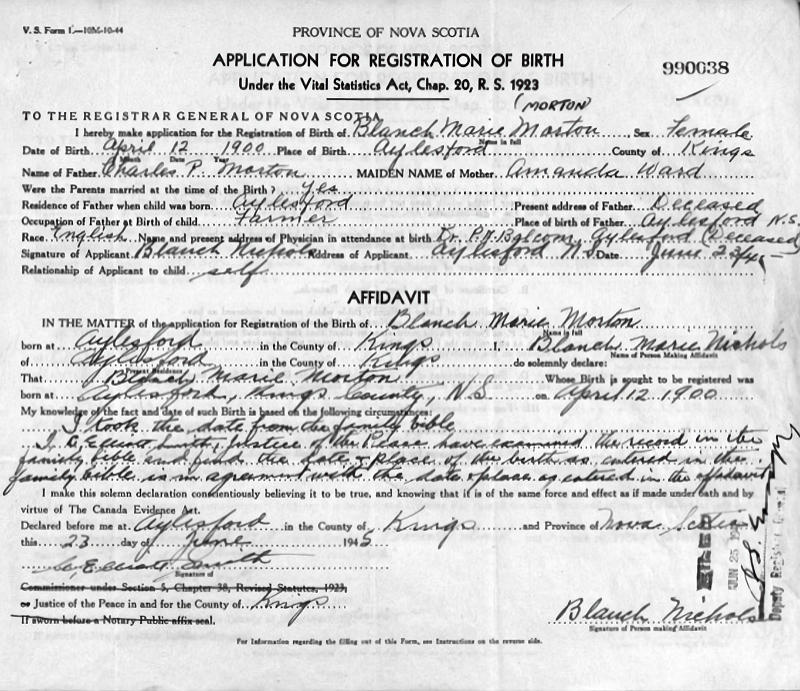 V. S. Form 1.—10M-10-44
PROVINCE OF NOVA SCOTIA
APPLICATION FOR REGISTRATION OF BIRTH
990038
Under the Vital Statistics Act, Chap. 20, R. S. 1923
(MORTON)
TO THE REGISTRAR GENERAL OF NOVA SCOTIA
I hereby make application for the Registration of Birth of Blanch Marie Morton Sex Female
Name in full
Date of Birth April 12 1900 Place of Birth Aylesford County of Kings
Month Date Year
Name of Father Charles P. Morton MAIDEN NAME of Mother Amanda Ward
Were the Parents married at the time of the Birth? Yes
Residence of Father when child was born Aylesford Present address of Father Deceased
Occupation of Father at Birth of child Farmer Place of birth of Father Aylesford N.S.
Race English Name and present address of Physician in attendance at birth Dr. Aylesford (Deceased)
Signature of Applicant Blanch Nichols Address of Applicant Aylesford N.S. Date June 23/45
Relationship of Applicant to child self
AFFIDAVIT
IN THE MATTER of the application for Registration of the Birth of Blanch Marie Morton
Name in full
born at Aylesford in the County of Kings I, Blanch Marie Nichols
Name of Person Making Affidavit
of Aylesford in the County of Kings do solemnly declare:
Present Residence
That Blanch Marie Morton Whose Birth is sought to be registered was
born at Aylesford, Kings County, N.S. on April 12 1900
My knowledge of the fact and date of such Birth is based on the following circumstances:
I took the date from the family bible
I C. Elliott Smith, Justice of the Peace have examined the record in the
family bible and find the date & place of the birth as entered in the
family bible is in agreement with the date & place as entered in the affidavit
I make this solemn declaration conscientiously believing it to be true, and knowing that it is of the same force and effect as if made under oath and by
virtue of The Canada Evidence Act.
Declared before me at Aylesford in the County of Kings and Province of Nova Scotia
this 23 day of June 1945
C. Elliott Smith
Signature of
Commissioner under Section 5, Chapter 38, Revised Statutes, 1923,
or Justice of the Peace in and for the County of Kings
If sworn before a Notary Public affix seal.
Blanch Nichols
Signature of Person making Affidavit
For Information regarding the filling out of this Form, see Instructions on the reverse side.
FILED
JUN 25
Deputy Registrar General